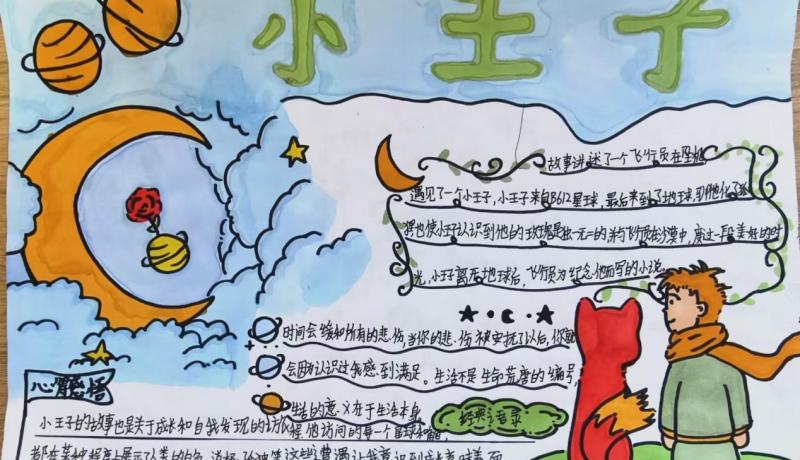 小王子
故事讲述了一个飞行员在坠机
遇见了一个小王子,小王子来自B612星球,最后来到了地球,
将也使小王子认识到他的玫瑰是独一无二的,并与飞行员在沙漠中,度过一段美好的时
光,小王子离开地球后,飞行员为纪念他而写的小说。
时间会缓和所有的悲伤,当你的悲伤被安抚了以后,你就
会因为认识过我感到满足。生活不是生命荒唐的编号,
生活的意义在于生活本身
经典语录
心得感悟
小王子的故事也是关于成长和自我发现的
他访问的每一个星球